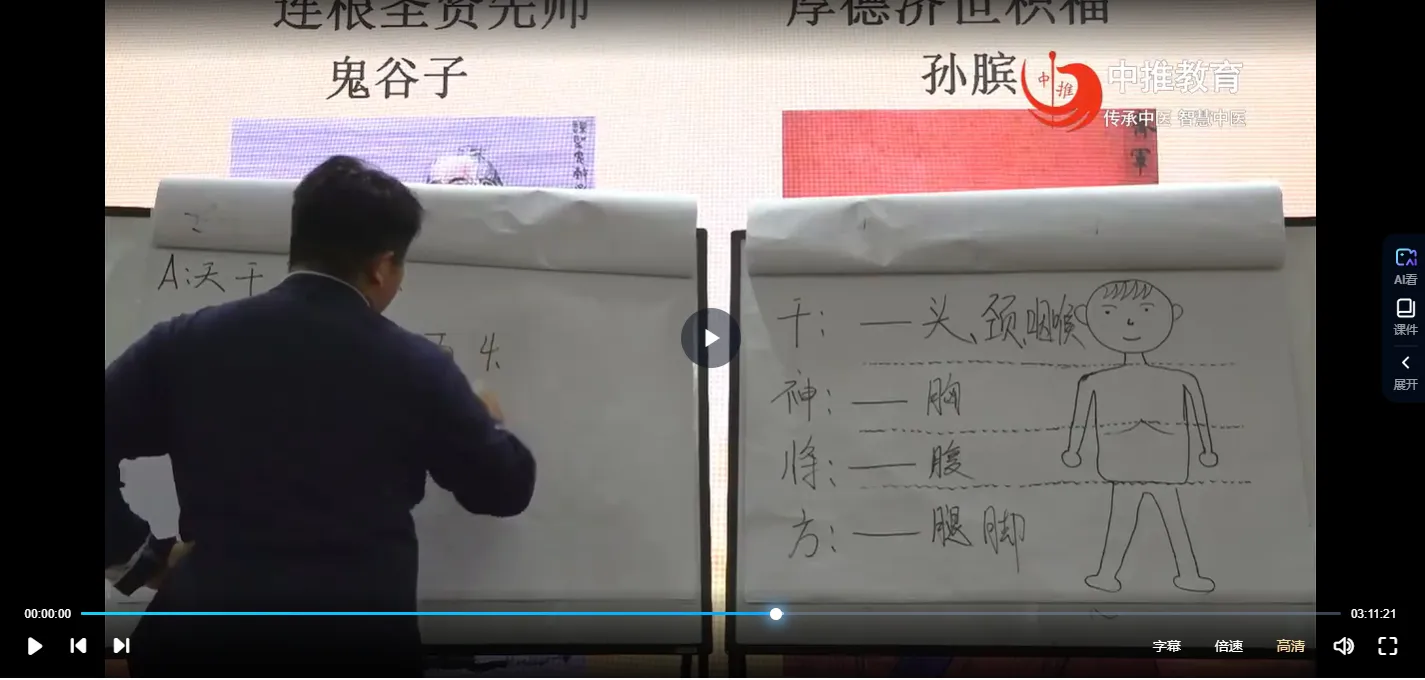 连根圣贤先师
厚德济世积福
鬼谷子
孙膑
中推
中推教育
传承中医 智慧中医
A:天干
头
干：—头、颈、咽喉
神：—胸
将：—腹
方：—腿脚
AI看
课件
展开
00:00:00
03:11:21
字幕
倍速
高清